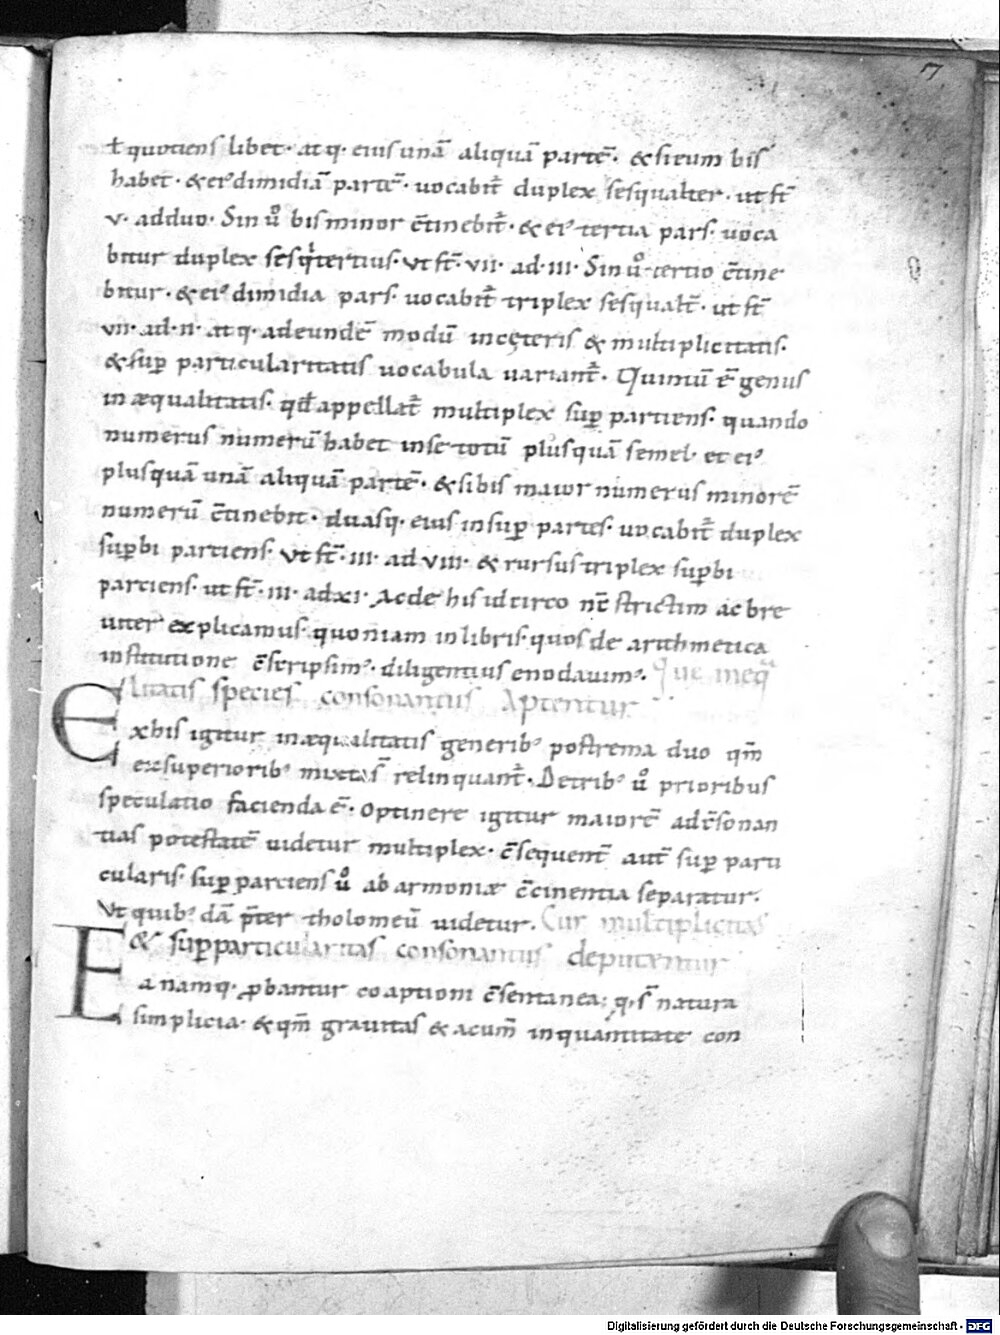 7
ł quotiens libet· atq· eius unā aliquā partē· & si eum bis
habet· & ei' dimidiā partē· uocabit̄ duplex sesqualter· ut st̄
v· ad duo· Sin ů bis minor c̄tinebit̄· & ei' tertia pars· uoca
bitur duplex sesq̇tertius· Vt st̄· vii· ad· iii· Sin ů· tertio c̄tine
bitur· & ei' dimidia pars· uocabit̄ triplex sesqualt̄· ut st̄
vii· ad· ii· atq· ad eundē modū in cęteris & multiplicitatis·
& suꝑ particularitatis uocabula uariant̄· Quintū ē genus
in æqualitatis· qđ appellat̄ multiplex suꝑ partiens· quando
numerus numerū habet in se totū plusquā semel· et ei'
plusquā unā aliquā partē· & si bis maior numerus minorē
numerū c̄tinebit· duasq· eius insuꝑ partes· uocabit̄ duplex
suꝑbi partiens· Vt st̄· iii· ad viii· & rursus triplex suꝑbi
partiens· ut st̄· iii· ad xi· Ac de his idcirco nc̄ strictim ac bre
uiter explicamus· quoniam in libris· quos de arithmetica
institutione c̄scripsim'· diligentius enodauim'· Que ineq̄
Ealitatis species consonantiis Aptentur
x his igitur inæqualitatis generib' postrema duo qm̄
ex superiorib' mixta s̄ relinquant̄· De trib' ů prioribus
speculatio facienda ē· Optinere igitur maiorē ad c̄sonan
tias potestatē uidetur multiplex· c̄sequent̄ aut̄ suꝑ parti
cularis· suꝑ partiens ů ab armoniæ c̄cinentia separatur·
Vt quib' dā p̄ter tholomeū uidetur· Cur multiplicitas
& suꝑparticularitas consonantiis deputentur
Ea namq· ꝓbantur coaptioni c̄sentanea; q· s̄ natura
simplicia· & qm̄ grauitas & acum̄ in quantitate con
Digitalisierung gefördert durch die Deutsche Forschungsgemeinschaft - DFG